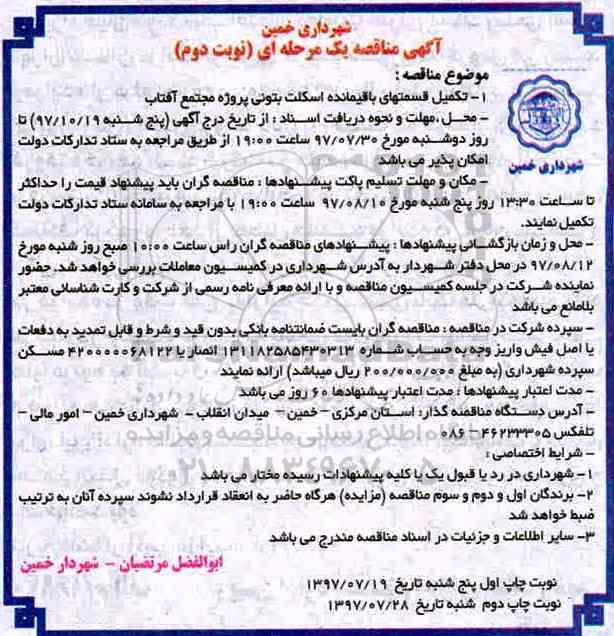 شهرداری خمین
آگهی مناقصه یک مرحله ای (نوبت دوم)
شهرداری خمین
موضوع مناقصه :
۱- تکمیل قسمتهای باقیمانده اسکلت بتونی پروژه مجتمع آفتاب
- محل ،مهلت و نحوه دریافت اسناد : از تاریخ درج آگهی (پنج شنبه ۹۷/۱۰/۱۹) تا
روز دوشنبه مورخ ۹۷/۰۷/۳۰ ساعت ۱۹:۰۰ از طریق مراجعه به ستاد تدارکات دولت
امکان پذیر می باشد
- مکان و مهلت تسلیم پاکت پیشنهادها : مناقصه گران باید پیشنهاد قیمت را حداکثر
تا ساعت ۱۳:۳۰ روز پنج شنبه مورخ ۹۷/۰۸/۱۰ ساعت ۱۹:۰۰ با مراجعه به سامانه ستاد تدارکات دولت
تکمیل نمایند.
- محل و زمان بازگشائی پیشنهادها : پیشنهادهای مناقصه گران راس ساعت ۱۰:۰۰ صبح روز شنبه مورخ
۹۷/۰۸/۱۲ در محل دفتر شهردار به آدرس شهرداری در کمیسیون معاملات بررسی خواهد شد. حضور
نماینده شرکت در جلسه کمیسیون مناقصه و با ارائه معرفی نامه رسمی از شرکت و کارت شناسائی معتبر
بلامانع می باشد
- سپرده شرکت در مناقصه : مناقصه گران بایست ضمانتنامه بانکی بدون قید و شرط و قابل تمدید به دفعات
یا اصل فیش واریز وجه به حساب شماره ۱۳۱۱۸۲۵۸۵۴۳۰۳۱۳ انصار یا ۴۲۰۰۰۰۰۰۶۸۱۲۲ مسکن
سپرده شهرداری (به مبلغ ۲۰۰/۰۰۰/۰۰۰ ریال میباشد) ارائه نمایند
- مدت اعتبار پیشنهادها : مدت اعتبار پیشنهادها ۶۰ روز می باشد
- آدرس دستگاه مناقصه گذار: استان مرکزی – خمین – میدان انقلاب - شهرداری خمین – امور مالی –
تلفکس ۴۶۲۳۳۳۰۵ – ۰۸۶
- شرایط اختصاصی :
۱- شهرداری در رد یا قبول یک یا کلیه پیشنهادات رسیده مختار می باشد
۲- برندگان اول و دوم و سوم مناقصه (مزایده) هرگاه حاضر به انعقاد قرارداد نشوند سپرده آنان به ترتیب
ضبط خواهد شد
۳- سایر اطلاعات و جزئیات در اسناد مناقصه مندرج می باشد
ابوالفضل مرتضیان – شهردار خمین
نوبت چاپ اول پنج شنبه تاریخ ۱۳۹۷/۰۷/۱۹
نوبت چاپ دوم شنبه تاریخ ۱۳۹۷/۰۷/۲۸